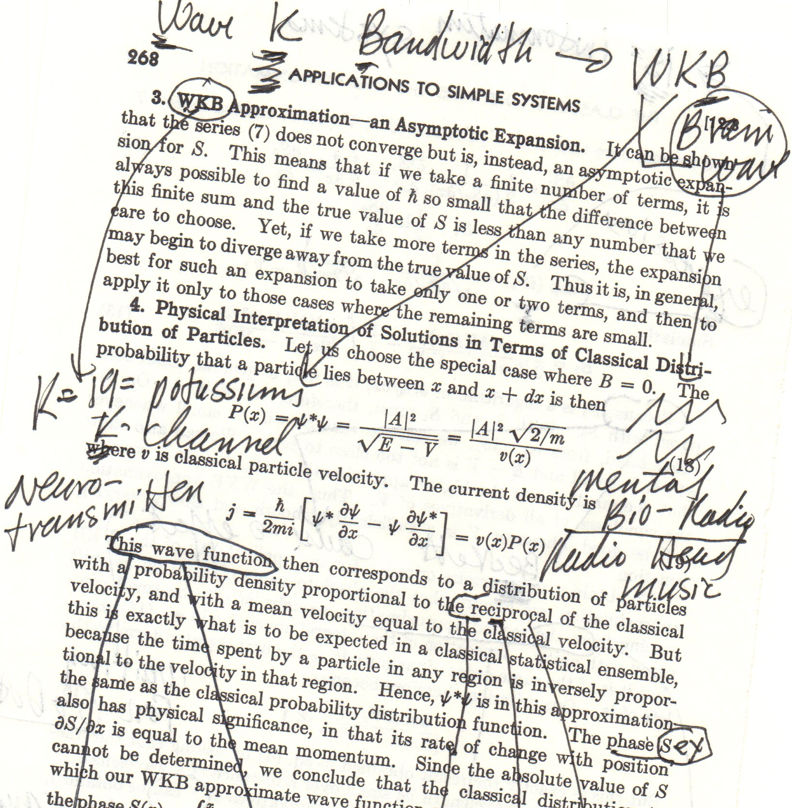 Wave K Bandwidth → WKB
268
APPLICATIONS TO SIMPLE SYSTEMS
Brain
wave
3. WKB Approximation—an Asymptotic Expansion. It can be shown
that the series (7) does not converge but is, instead, an asymptotic expan-
sion for S. This means that if we take a finite number of terms, it is
always possible to find a value of ℏ so small that the difference between
this finite sum and the true value of S is less than any number that we
care to choose. Yet, if we take more terms in the series, the expansion
may begin to diverge away from the true value of S. Thus it is, in general,
best for such an expansion to take only one or two terms, and then to
apply it only to those cases where the remaining terms are small.
4. Physical Interpretation of Solutions in Terms of Classical Distri-
bution of Particles. Let us choose the special case where B = 0. The
probability that a particle lies between x and x + dx is then
K = 19 = potassiums
P(x) = ψ*ψ = |A|² / √(E − V) = |A|² √(2/m) / v(x)
K- Channel
(18)
where v is classical particle velocity. The current density is
mental
Neuro-
transmitten
Bio-Radio
j = ℏ/2mi [ψ* ∂ψ/∂x − ψ ∂ψ*/∂x] = v(x)P(x)
Radio
music
This wave function then corresponds to a distribution of particles
with a probability density proportional to the reciprocal of the classical
velocity, and with a mean velocity equal to the classical velocity. But
this is exactly what is to be expected in a classical statistical ensemble,
because the time spent by a particle in any region is inversely propor-
tional to the velocity in that region. Hence, ψ*ψ is in this approximation
the same as the classical probability distribution function. The phase Sex
also has physical significance, in that its rate of change with position
∂S/∂x is equal to the mean momentum. Since the absolute value of S
cannot be determined, we conclude that the classical
which our WKB approximate wave function
the phase